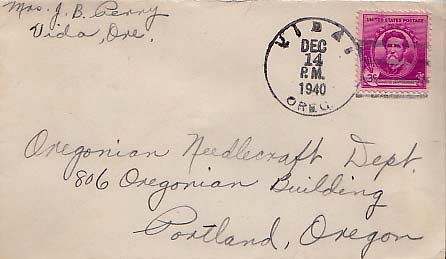 Mrs. J. B. Perry
Vida, Ore.
VIDA
DEC
14
P.M.
1940
OREG.
UNITED STATES POSTAGE
3¢
Oregonian Needlecraft Dept.
806 Oregonian Building
Portland, Oregon